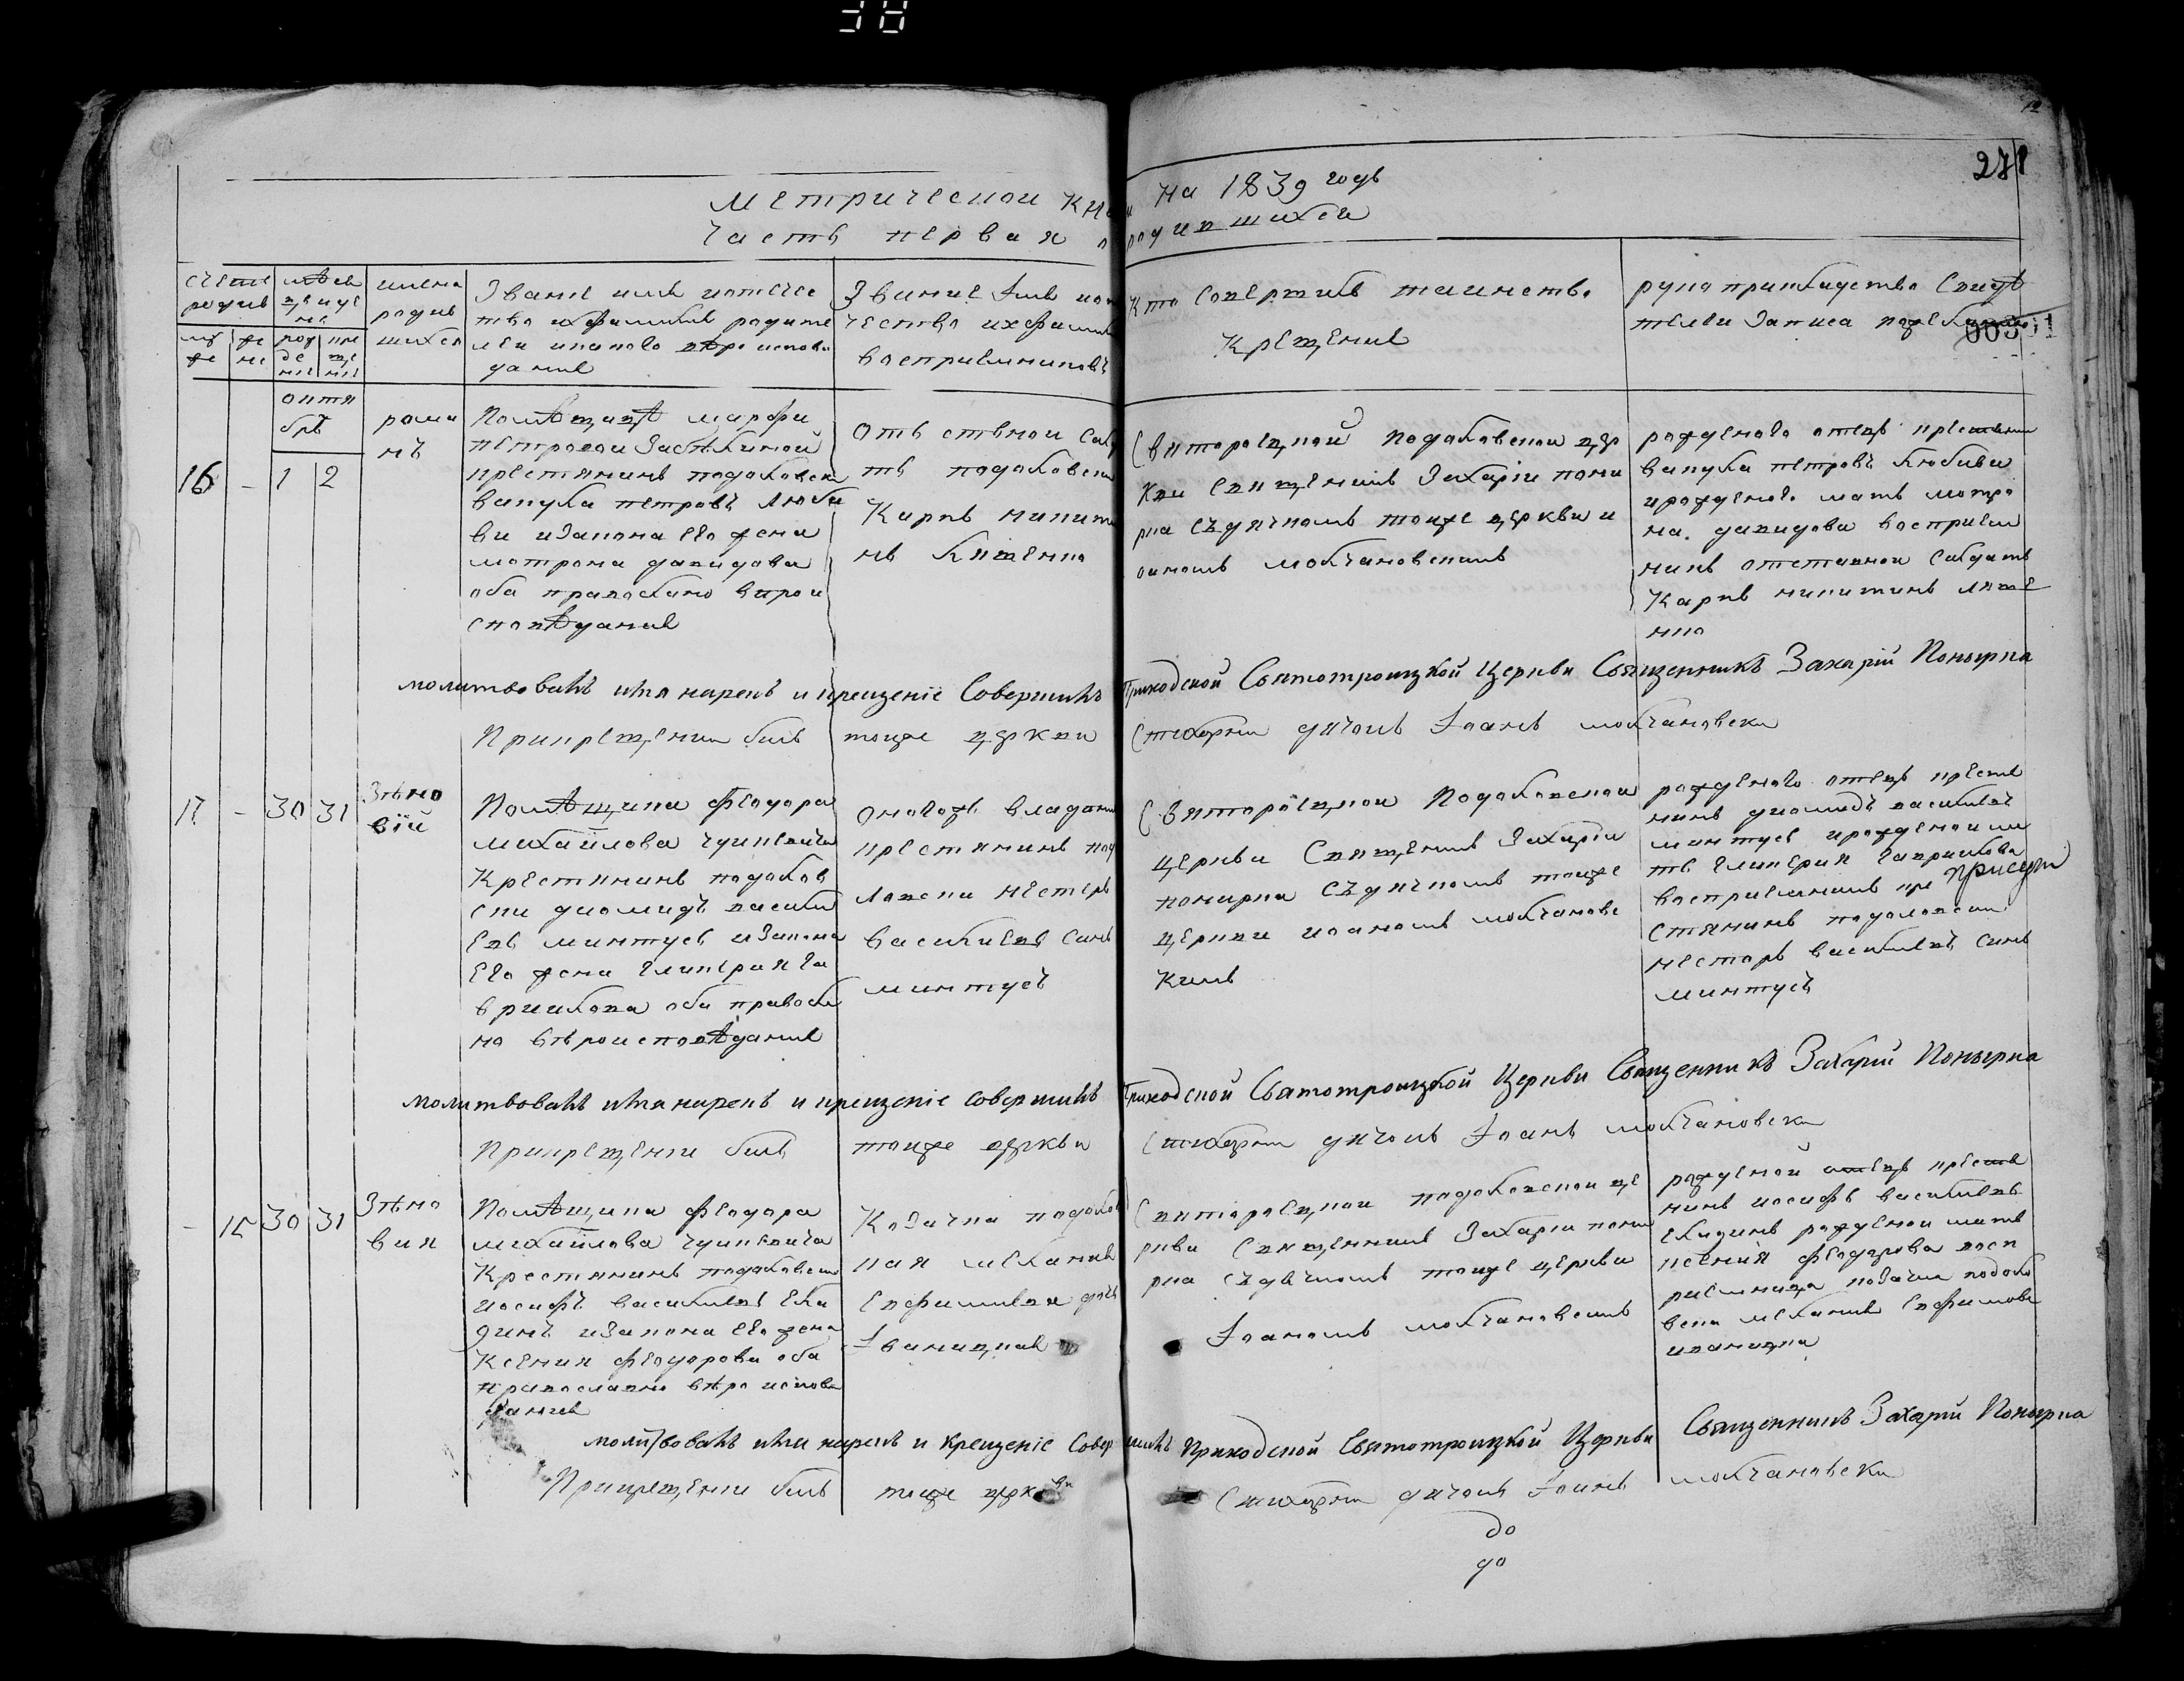 38
12
278
Метрической кни на 1839 годъ
Часть первая о родившихся
имена
родив
шихся
Звание имя иотчес
тво ихфамиля родите
леи икаково веро испове
дания
Звание Імя иот
чество ихфамил
восприемниковъ
кто совершивъ таинство
Крещения
рукоприкладство Свидѣ
телеи записа
003
октя
брь
16 - 1 2
рома
нъ
Помѣщицѣ марфи
петровои
крестянинъ подоловски
вакула петровъ люби
ви изакона его жена
мотрона давидова
оба православно вирои
споведания
отъ ставнои сал
тъ подоловски
Карпъ никити
нъ Ляшенко
Святотроецкой подоловскои цер
кви Священикъ Захарiи пони
рка съдячкомъ тоиже церкви и
оиномъ молчановскимъ
рожденого отецъ крестянин
вакула петровъ любиви
ирожденого мать мотро
на давидова восприем
никъ отставнои салдатъ
Карпъ никитинъ ляше
нко
молитвовалъ имя нарекъ и крещеніе Совершилъ Приходской Святотроицкой Церкви Священникъ Захарій Понырка
Прикрещении билъ тоиже церкви Стихарни дячокъ Іоанъ молчановски
17 - 30 31
Зѣно
вій
Помѣщика Феодора
михайлова
Крестянинъ подолов
ски диомидъ васили
евъ минтусъ изакона
Его жена гликерия га
врилова оба правосл
но вѣроисповѣдания
оногожъ владени
крестянинъ под
ловски нестеръ
василиевъ синъ
минтусъ
Святотроiецкои Подоловскои
церкви Священикъ Захарiи
понирка съдячкомъ тоиже
церкви иоаномъ молчановс
кимъ
рожденого отецъ крестя
нинъ диомидъ василиевъ
минтусъ ирожденои ма
ть гликерия гаврилова
восприемникъ кре
стянинъ подоловски
несторъ василиевъ синъ
минтусъ
молитвовалъ имя нарекъ и крещеніе совершилъ Приходской Святотроицкой Церкви Священникъ Захарій Понырка
Прикрещении билъ тоиже церкви Стихарни дячокъ Іоанъ молчановски
- 15 30 31
Зѣно
вия
Помѣщика Феодора
михайлова
Крестянинъ подоловски
иосифъ василиевъ
изакона его жена
Ксения феодорова оба
православно вѣро испове
дания
Козачка подолов
кая мелания
Евфимиева дочь
Іваницкая
Святотроецкои подоловскои це
ркви Священникъ Захарiи пони
рка съдячкомъ тоиже церкви
Іоаномъ молчановскимъ
рожденой отецъ крестя
нинъ иосифъ василиевъ
рожденои мать
ксения феодорова восп
риемница козачка подоло
вска мелания Евфимова
иваницка
молитвовалъ имя нарекъ и крещеніе Совершилъ Приходской Святотроицкой Церкви Священникъ Захарій Понырка
Прикрещении билъ тоиже церкви Стихарни дячокъ Іоанъ молчановски
до
до